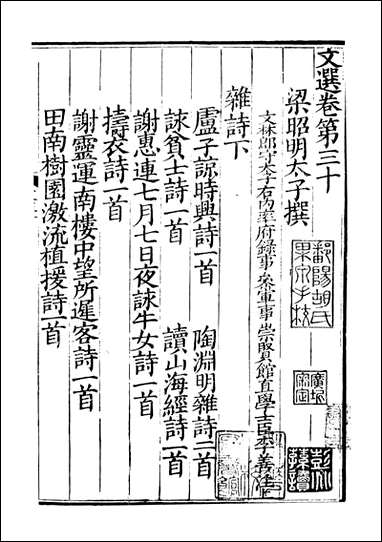 文選卷第三十
梁昭明太子撰
文林郎守太子右內率府錄事參軍事崇賢館直學士臣李善注
雜詩下
盧子諒時興詩一首
陶淵明雜詩二首
詠貧士詩一首
讀山海經詩一首
謝惠連七月七日夜詠牛女詩一首
擣衣詩一首
謝靈運南樓中望所遲客詩一首
田南樹園激流植援詩一首
鄱陽胡氏
果泉手校